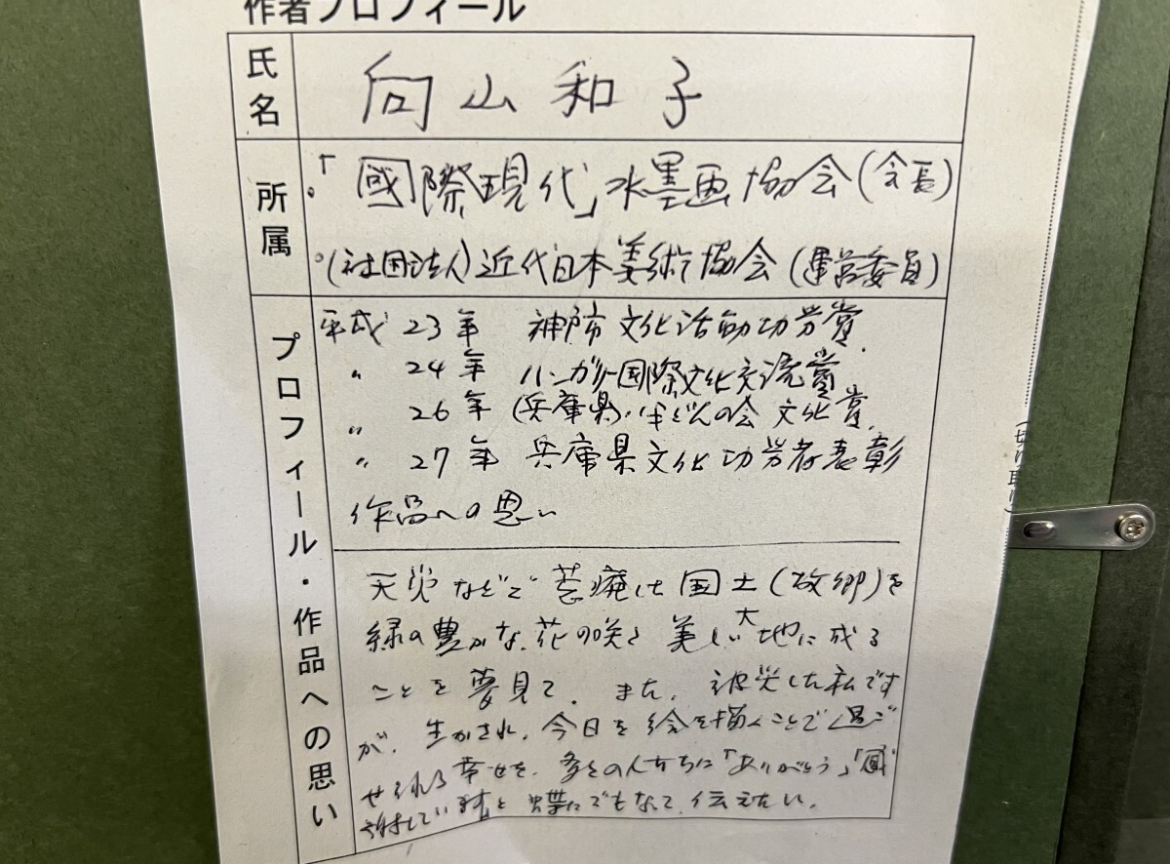 作者プロフィール
氏名
向山和子
所属
。「國際現代」水墨画協会(会長)
。(社団法人)近代日本美術協会(運営委員)
プロフィール・作品への思い
平成23年 神戸市文化活動功労賞.
〃 24年 ハンガリー国際文化交流賞
〃 26年 (兵庫県)半どんの会文化賞.
〃 27年 兵庫県文化功労者表彰
作品への思い
天災などで荒廃した国土(故郷)を
緑の豊かな、花の咲く美しい大地に成る
ことを夢見て. また、被災した私です
が、生かされ、今日を絵を描くことで過ご
せられる幸せを、多くの人たちに「ありがとう」「感
謝しています」と 蝶にでもなって、伝えたい.
(切り取り)